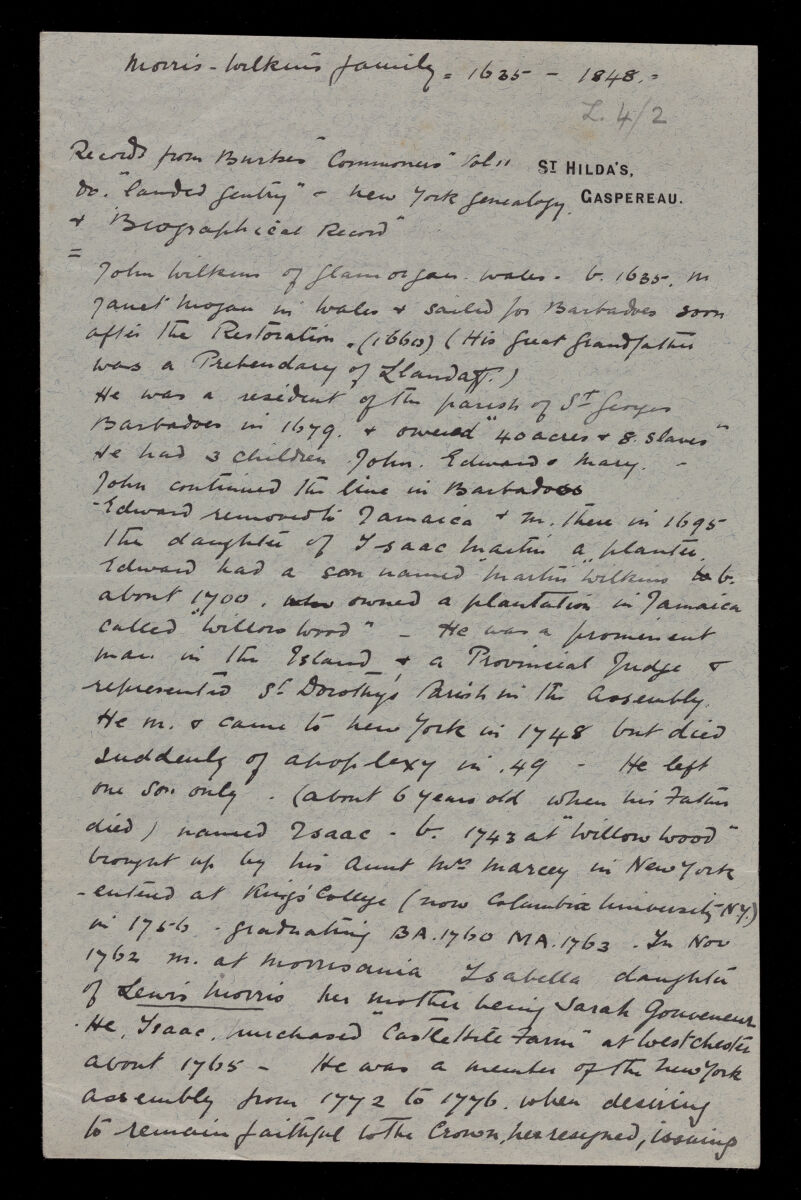 Morris-Wilkins family = 1635 - 1848.=
L. 4/2
Records from Burkes "Commoners" Vol II
ST HILDA'S,
GASPEREAU.
Do. "Landed Gentry" - New York Genealogy.
& "Biographical Record"
=
John Wilkins of Glamorgan. Wales - b. 1635. m
Janet Mogan in Wales & sailed for Barbadoes soon
after the Restoration. (1660) (His great grandfather
was a Prebendary of Llandaff.)
He was a resident of the parish of St Georges
Barbadoes in 1679. & owned "40 acres & 8. slaves"
He had 3 children John. Edward & Mary. -
John continued the line in Barbadoes
-Edward removed to Jamaica & m. there in 1695
the daughter of Isaac Martin a planter.
Edward had a son named "Martin" Wilkins b.
about 1700. who owned a plantation in Jamaica
called "Willow wood" - He was a prominent
man in the Island & a Provincial Judge &
represented St Dorothy's Parish in the Assembly.
He m. & came to New York in 1748 but died
suddenly of apoplexy in .49 - He left
one son only. (about 6 years old when his Father
died) named Isaac - b. 1743 at "Willow wood"
brought up by his Aunt Mrs Marcey in New York
-entered at King's College (now Columbia University N.Y.)
in 1756 - graduating BA. 1760 MA. 1763. In Nov
1762 m. at Morrisania Isabella daughter
of Lewis Morris her mother being Sarah Gouveneur
.He, Isaac, purchased "Castle Hile Farm" at Westchester
about 1765 - He was a member of the New York
assembly from 1772 to 1776. when desiring
to remain faithful to the Crown, he resigned, issuing